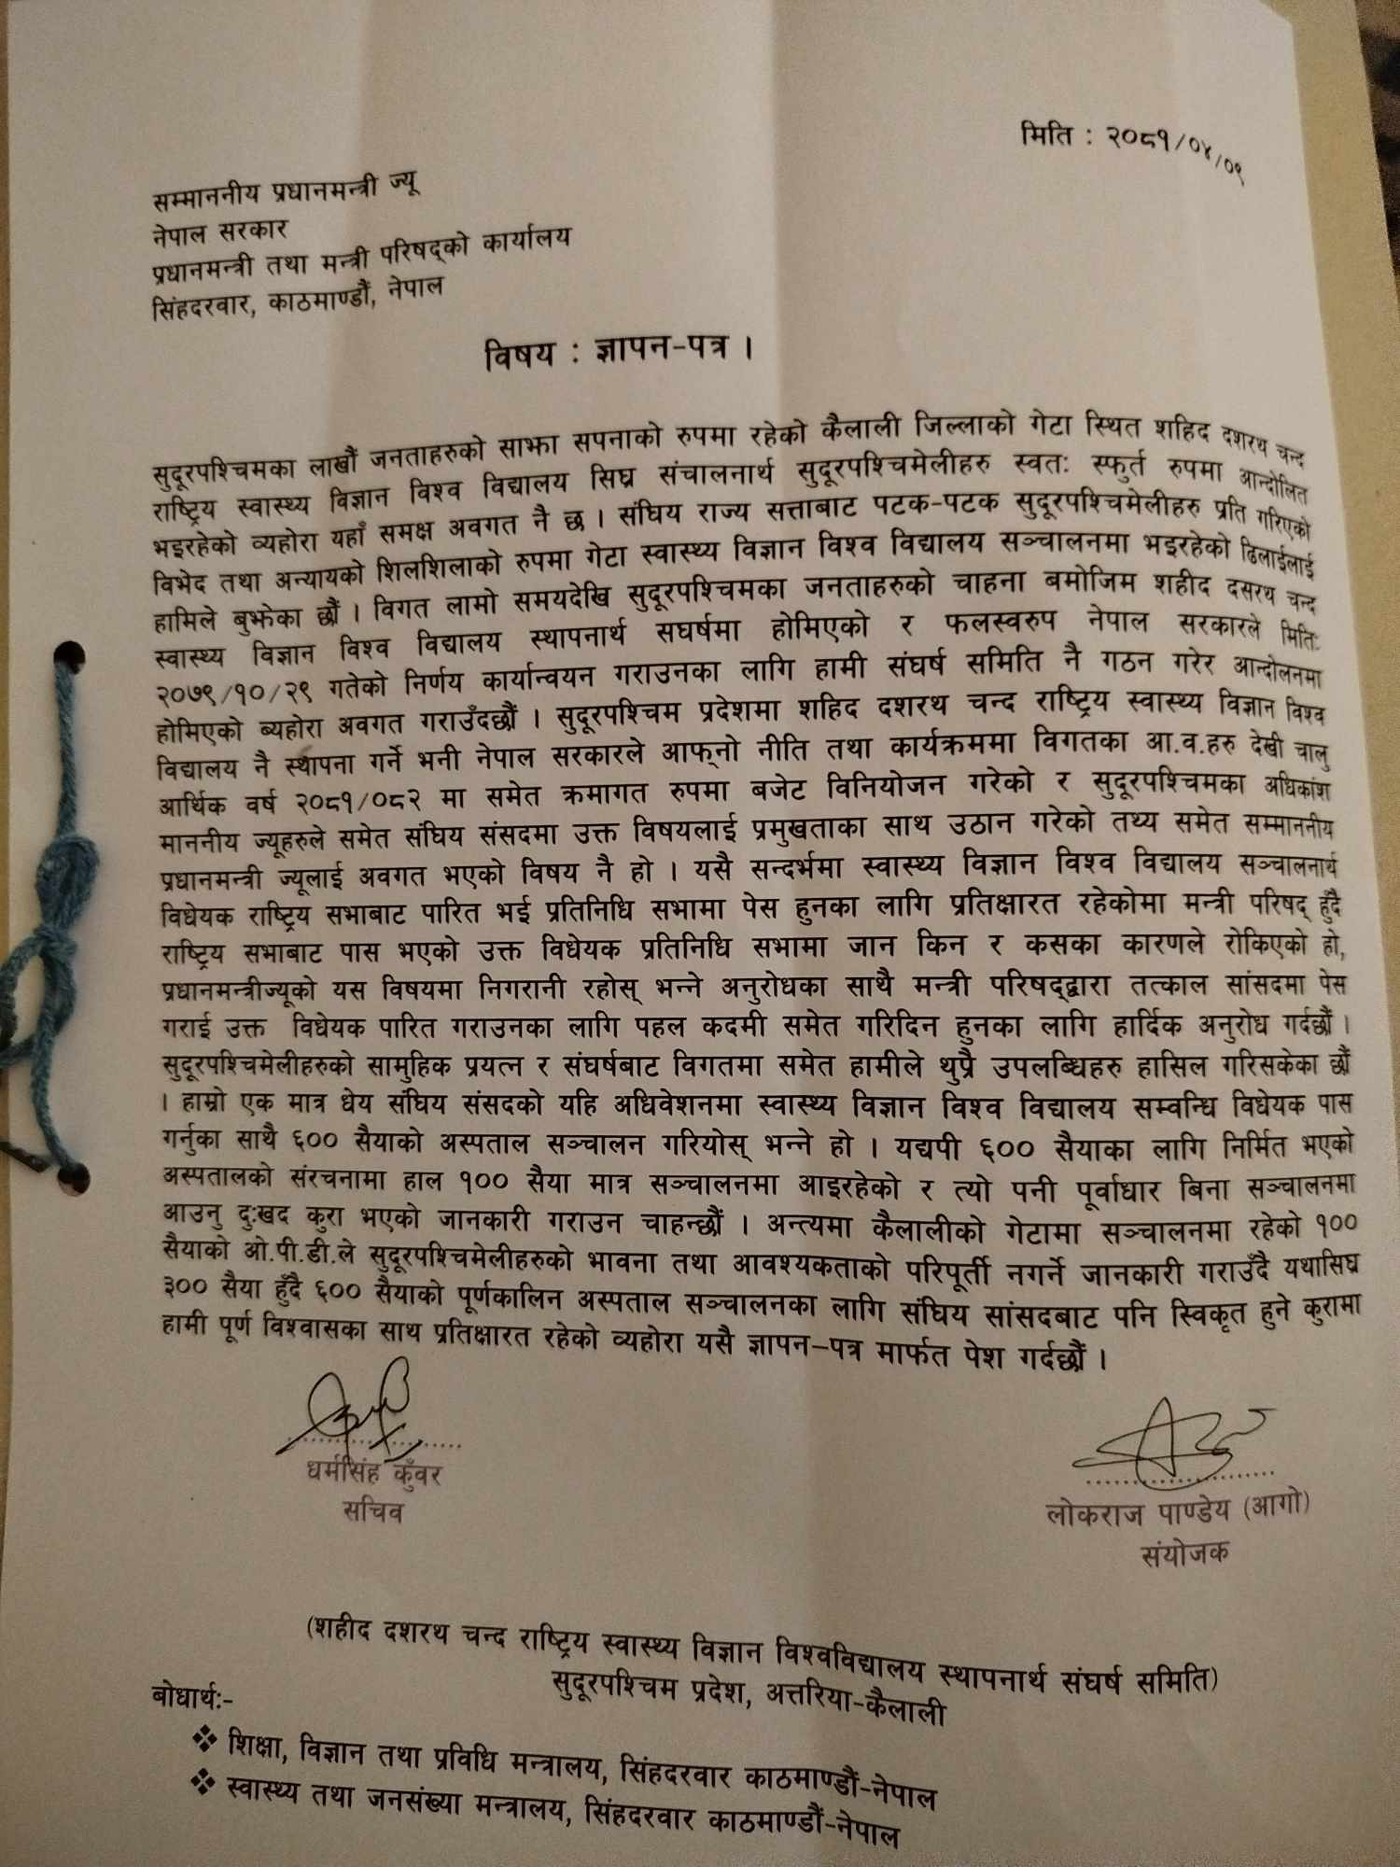 मिति : २०८१/०४/०९
सम्माननीय प्रधानमन्त्री ज्यू
नेपाल सरकार
प्रधानमन्त्री तथा मन्त्री परिषद्को कार्यालय
सिंहदरवार, काठमाण्डौं, नेपाल
विषय : ज्ञापन-पत्र ।
सुदूरपश्चिमका लाखौं जनताहरुको साझा सपनाको रुपमा रहेको कैलाली जिल्लाको गेटा स्थित शहिद दशरथ चन्द
राष्ट्रिय स्वास्थ्य विज्ञान विश्व विद्यालय सिघ्र संचालनार्थ सुदूरपश्चिमेलीहरु स्वतः स्फुर्त रुपमा आन्दोलित
भइरहेको व्यहोरा यहाँ समक्ष अवगत नै छ । संघिय राज्य सत्ताबाट पटक-पटक सुदूरपश्चिमेलीहरु प्रति गरिएको
विभेद तथा अन्यायको शिलशिलाको रुपमा गेटा स्वास्थ्य विज्ञान विश्व विद्यालय सञ्चालनमा भइरहेको ढिलाईलाई
हामिले बुझेका छौं । विगत लामो समयदेखि सुदूरपश्चिमका जनताहरुको चाहना बमोजिम शहीद दसरथ चन्द
स्वास्थ्य विज्ञान विश्व विद्यालय स्थापनार्थ सघर्षमा होमिएको र फलस्वरुप नेपाल सरकारले मितिः
२०७९/१०/२९ गतेको निर्णय कार्यान्वयन गराउनका लागि हामी संघर्ष समिति नै गठन गरेर आन्दोलनमा
होमिएको ब्यहोरा अवगत गराउँदछौं । सुदूरपश्चिम प्रदेशमा शहिद दशरथ चन्द राष्ट्रिय स्वास्थ्य विज्ञान विश्व
विद्यालय नै स्थापना गर्ने भनी नेपाल सरकारले आफ्नो नीति तथा कार्यक्रममा विगतका आ.व.हरु देखी चालु
आर्थिक वर्ष २०८१/०८२ मा समेत क्रमागत रुपमा बजेट विनियोजन गरेको र सुदूरपश्चिमका अधिकांश
माननीय ज्यूहरुले समेत संघिय संसदमा उक्त विषयलाई प्रमुखताका साथ उठान गरेको तथ्य समेत सम्माननीय
प्रधानमन्त्री ज्यूलाई अवगत भएको विषय नै हो । यसै सन्दर्भमा स्वास्थ्य विज्ञान विश्व विद्यालय सञ्चालनार्थ
विधेयक राष्ट्रिय सभाबाट पारित भई प्रतिनिधि सभामा पेस हुनका लागि प्रतिक्षारत रहेकोमा मन्त्री परिषद् हुँदै
राष्ट्रिय सभाबाट पास भएको उक्त विधेयक प्रतिनिधि सभामा जान किन र कसका कारणले रोकिएको हो,
प्रधानमन्त्रीज्यूको यस विषयमा निगरानी रहोस् भन्ने अनुरोधका साथै मन्त्री परिषद्द्वारा तत्काल सांसदमा पेस
गराई उक्त विधेयक पारित गराउनका लागि पहल कदमी समेत गरिदिन हुनका लागि हार्दिक अनुरोध गर्दछौं ।
सुदूरपश्चिमेलीहरुको सामुहिक प्रयत्न र संघर्षबाट विगतमा समेत हामीले थुप्रै उपलब्धिहरु हासिल गरिसकेका छौं
। हाम्रो एक मात्र धेय संघिय संसदको यहि अधिवेशनमा स्वास्थ्य विज्ञान विश्व विद्यालय सम्वन्धि विधेयक पास
गर्नुका साथै ६०० सैयाको अस्पताल सञ्चालन गरियोस् भन्ने हो । यद्यपी ६०० सैयाका लागि निर्मित भएको
अस्पतालको संरचनामा हाल १०० सैया मात्र सञ्चालनमा आइरहेको र त्यो पनी पूर्वाधार बिना सञ्चालनमा
आउनु दुःखद कुरा भएको जानकारी गराउन चाहन्छौं । अन्त्यमा कैलालीको गेटामा सञ्चालनमा रहेको १००
सैयाको ओ.पी.डी.ले सुदूरपश्चिमेलीहरुको भावना तथा आवश्यकताको परिपूर्ती नगर्ने जानकारी गराउँदै यथासिघ्र
३०० सैया हुँदै ६०० सैयाको पूर्णकालिन अस्पताल सञ्चालनका लागि संघिय सांसदबाट पनि स्विकृत हुने कुरामा
हामी पूर्ण विश्वासका साथ प्रतिक्षारत रहेको व्यहोरा यसै ज्ञापन-पत्र मार्फत पेश गर्दछौं ।
धर्मसिंह कुँवर
सचिव
लोकराज पाण्डेय (आगो)
संयोजक
(शहीद दशरथ चन्द राष्ट्रिय स्वास्थ्य विज्ञान विश्वविद्यालय स्थापनार्थ संघर्ष समिति)
सुदूरपश्चिम प्रदेश, अत्तरिया-कैलाली
बोधार्थः-
❖ शिक्षा, विज्ञान तथा प्रविधि मन्त्रालय, सिंहदरवार काठमाण्डौं-नेपाल
❖ स्वास्थ्य तथा जनसंख्या मन्त्रालय, सिंहदरवार काठमाण्डौं-नेपाल